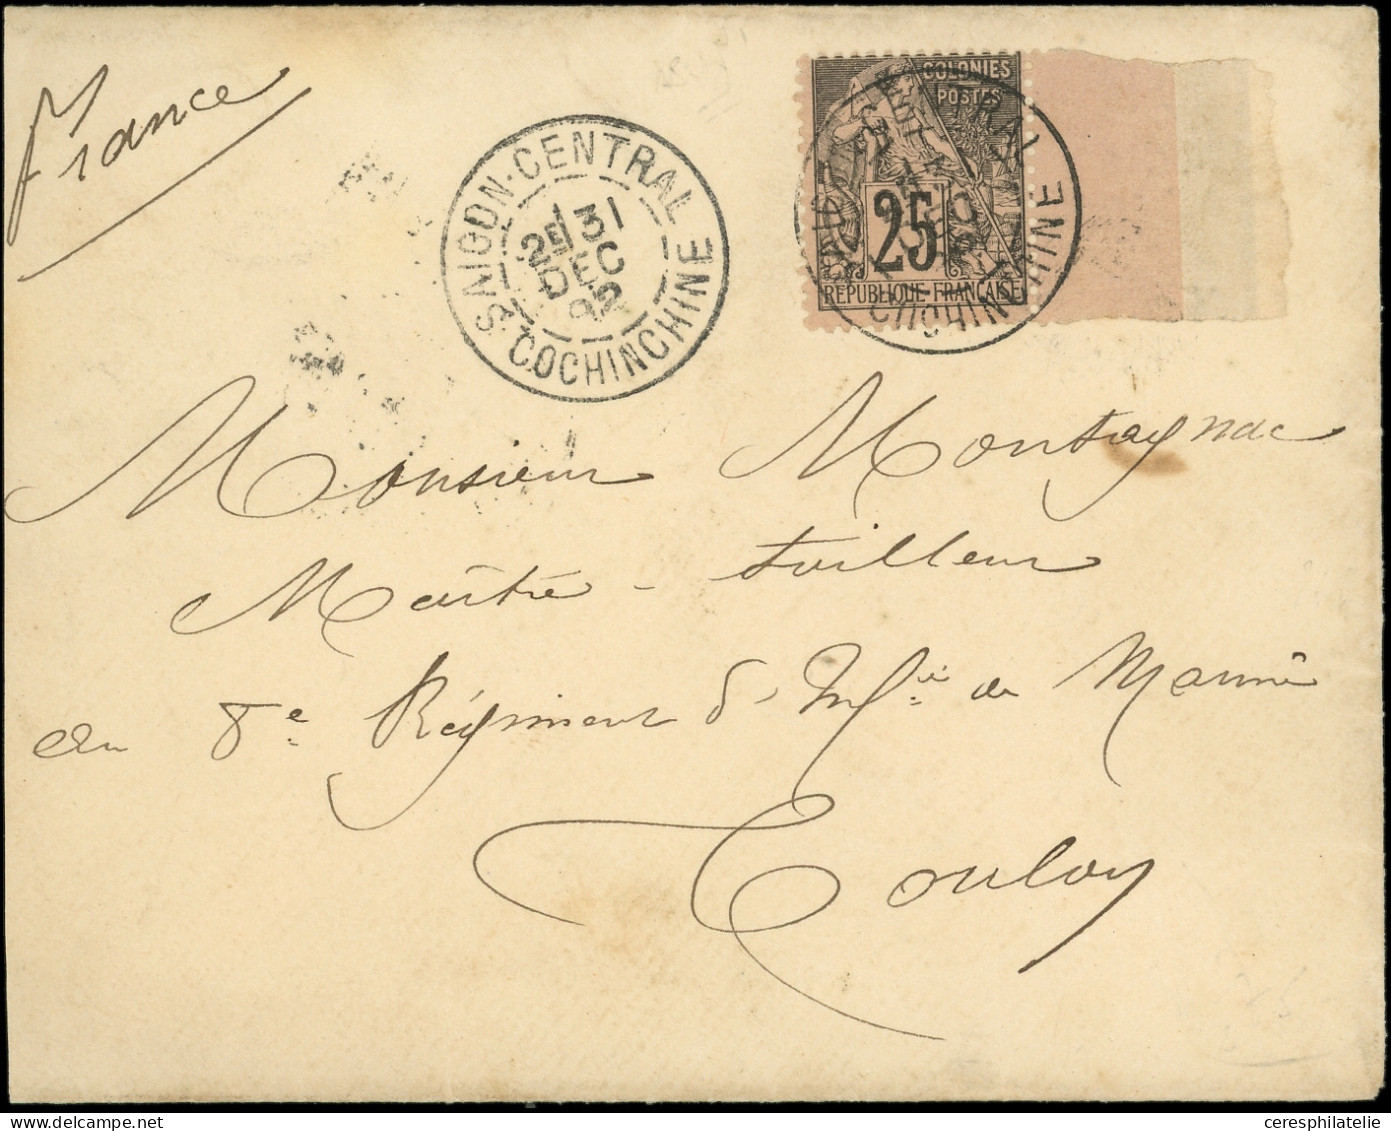 France
SAIGON-CENTRAL
2E 31
DEC
92
COCHINCHINE
COLONIES
POSTES
25
REPUBLIQUE FRANÇAISE
COCHINCHINE
Monsieur Montagnac
Maître-tailleur
au 8e Régiment d'Mie de Marine
Toulon
ceresphilatelie